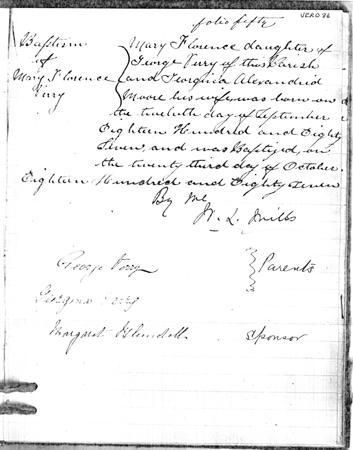 folio fifty
VERD 86
Baptism
of
Mary Florence
Perry
Mary Florence daughter of
George Perry of this Parish
and Georgina Alexandrid
Moore his wife was born on
the twelfth day of September
Eighteen Hundred and Eighty
Seven and was Baptized on
the twenty third day of October
Eighteen Hundred and Eighty Seven
By Me
W. L. Mills
George Perry
Georgina Perry
Parents
Margaret Blundell
Sponsor